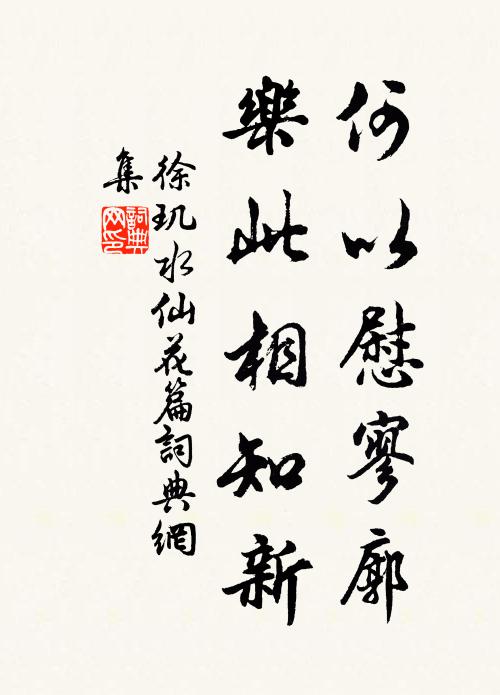 何以慰寥廓
樂此相知新
徐玑水仙花篇詞典網
集
詞典网印